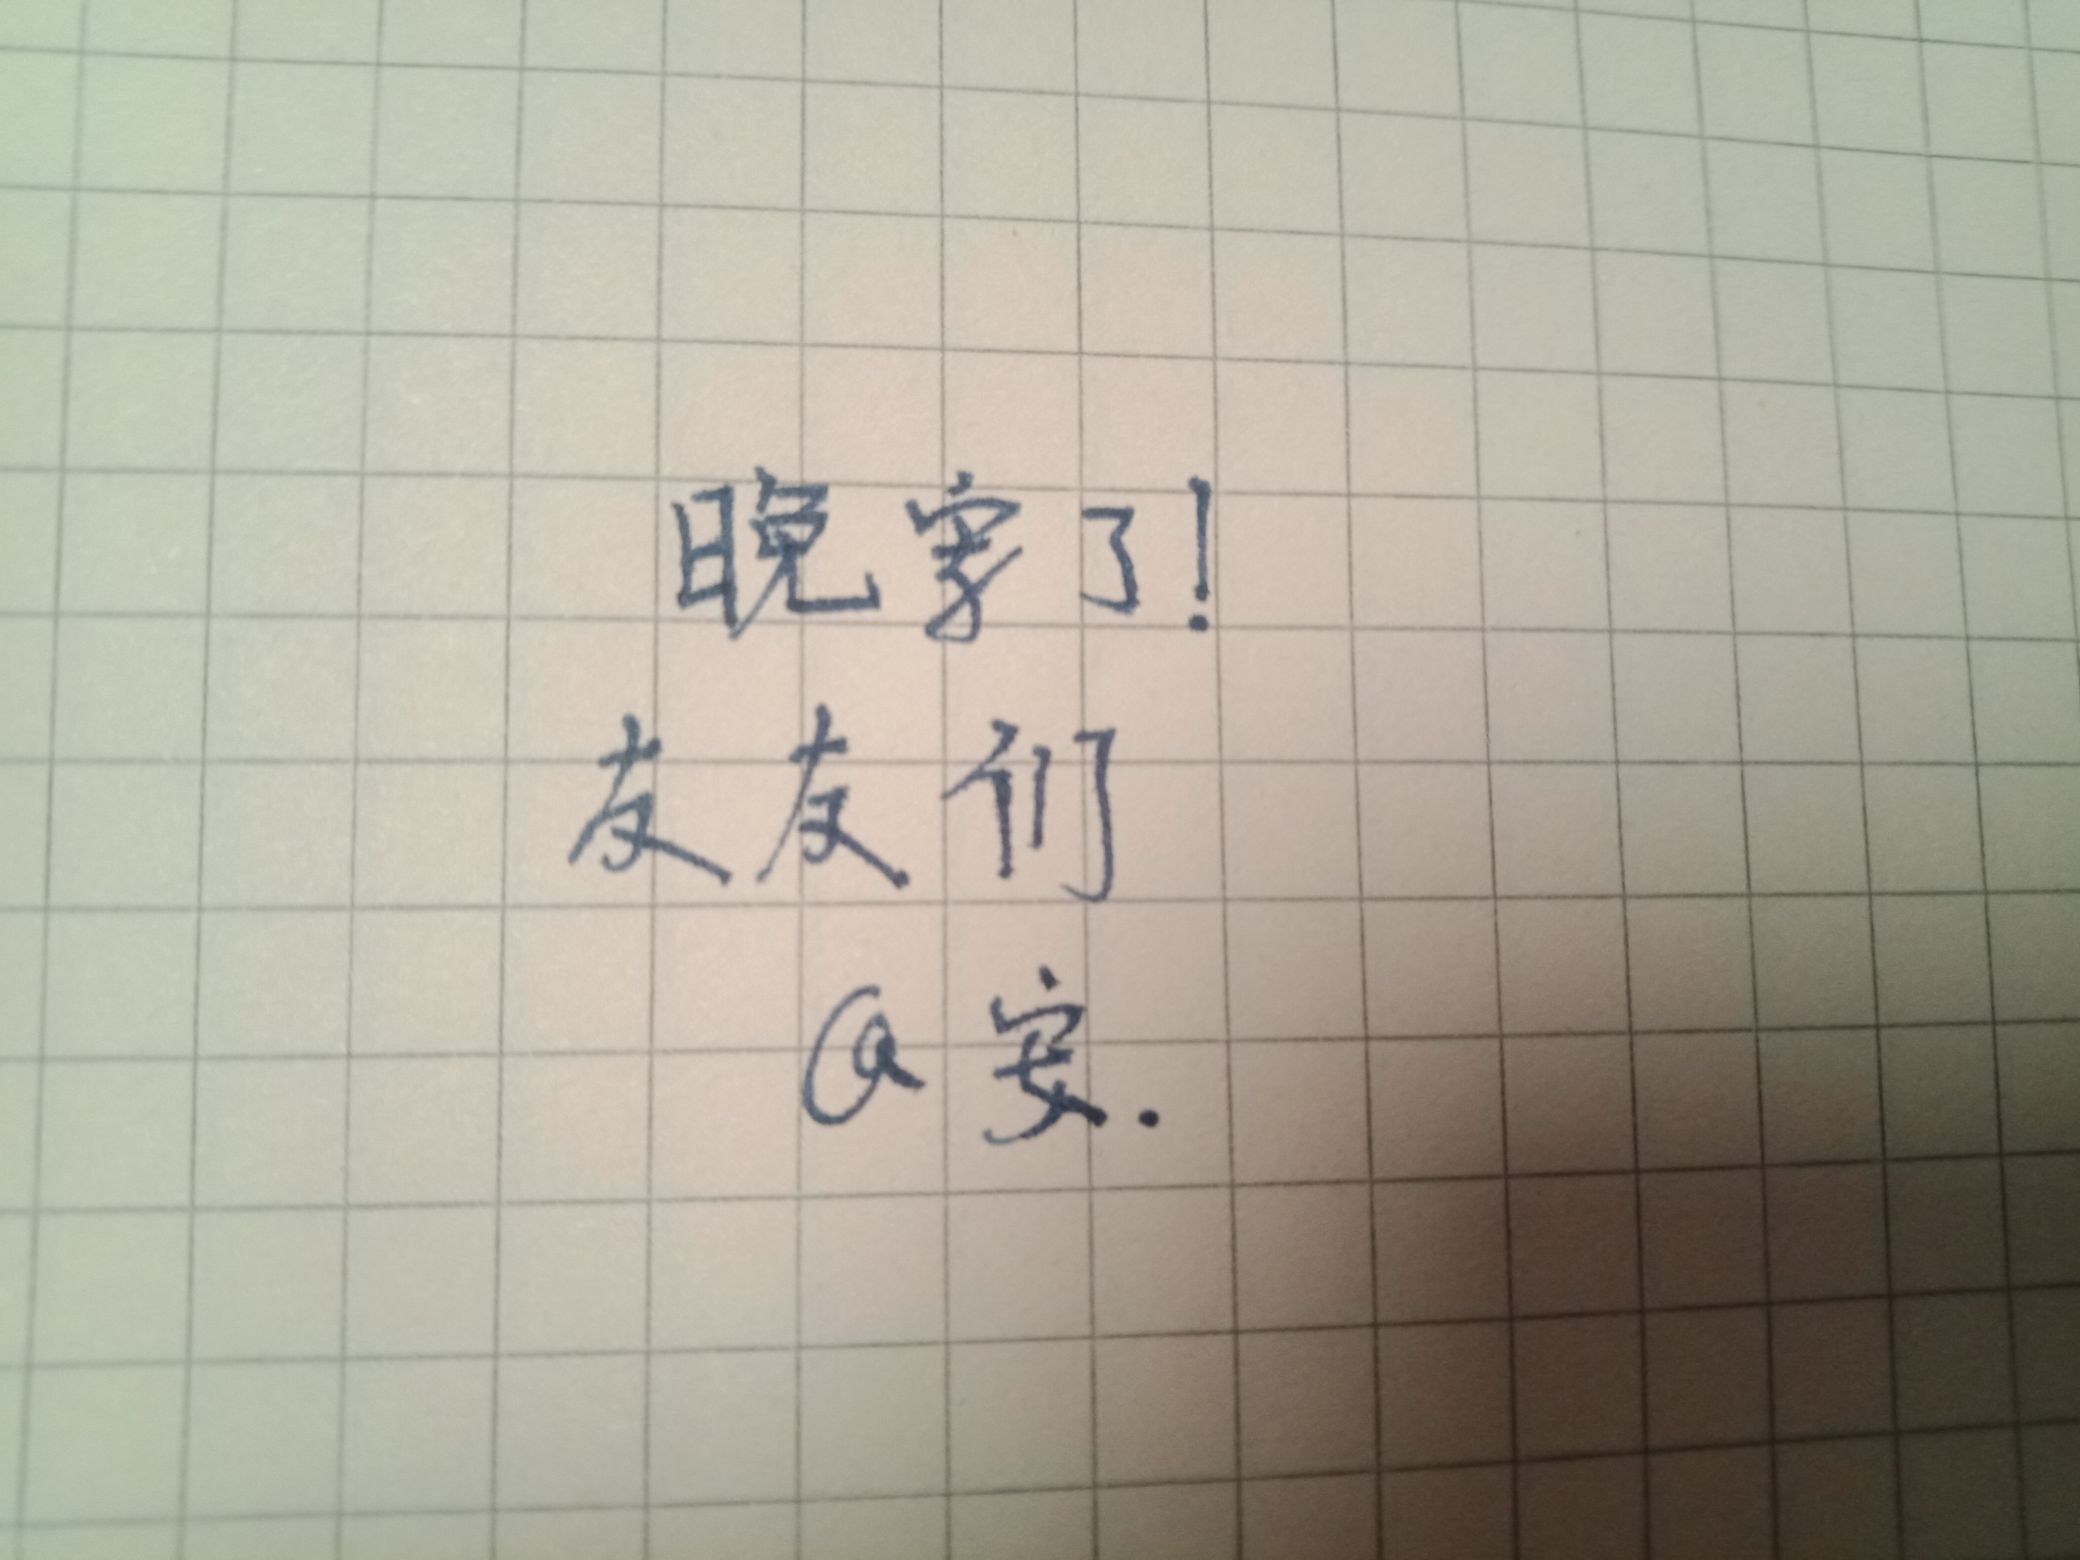 晚安了!
友友们
@安.